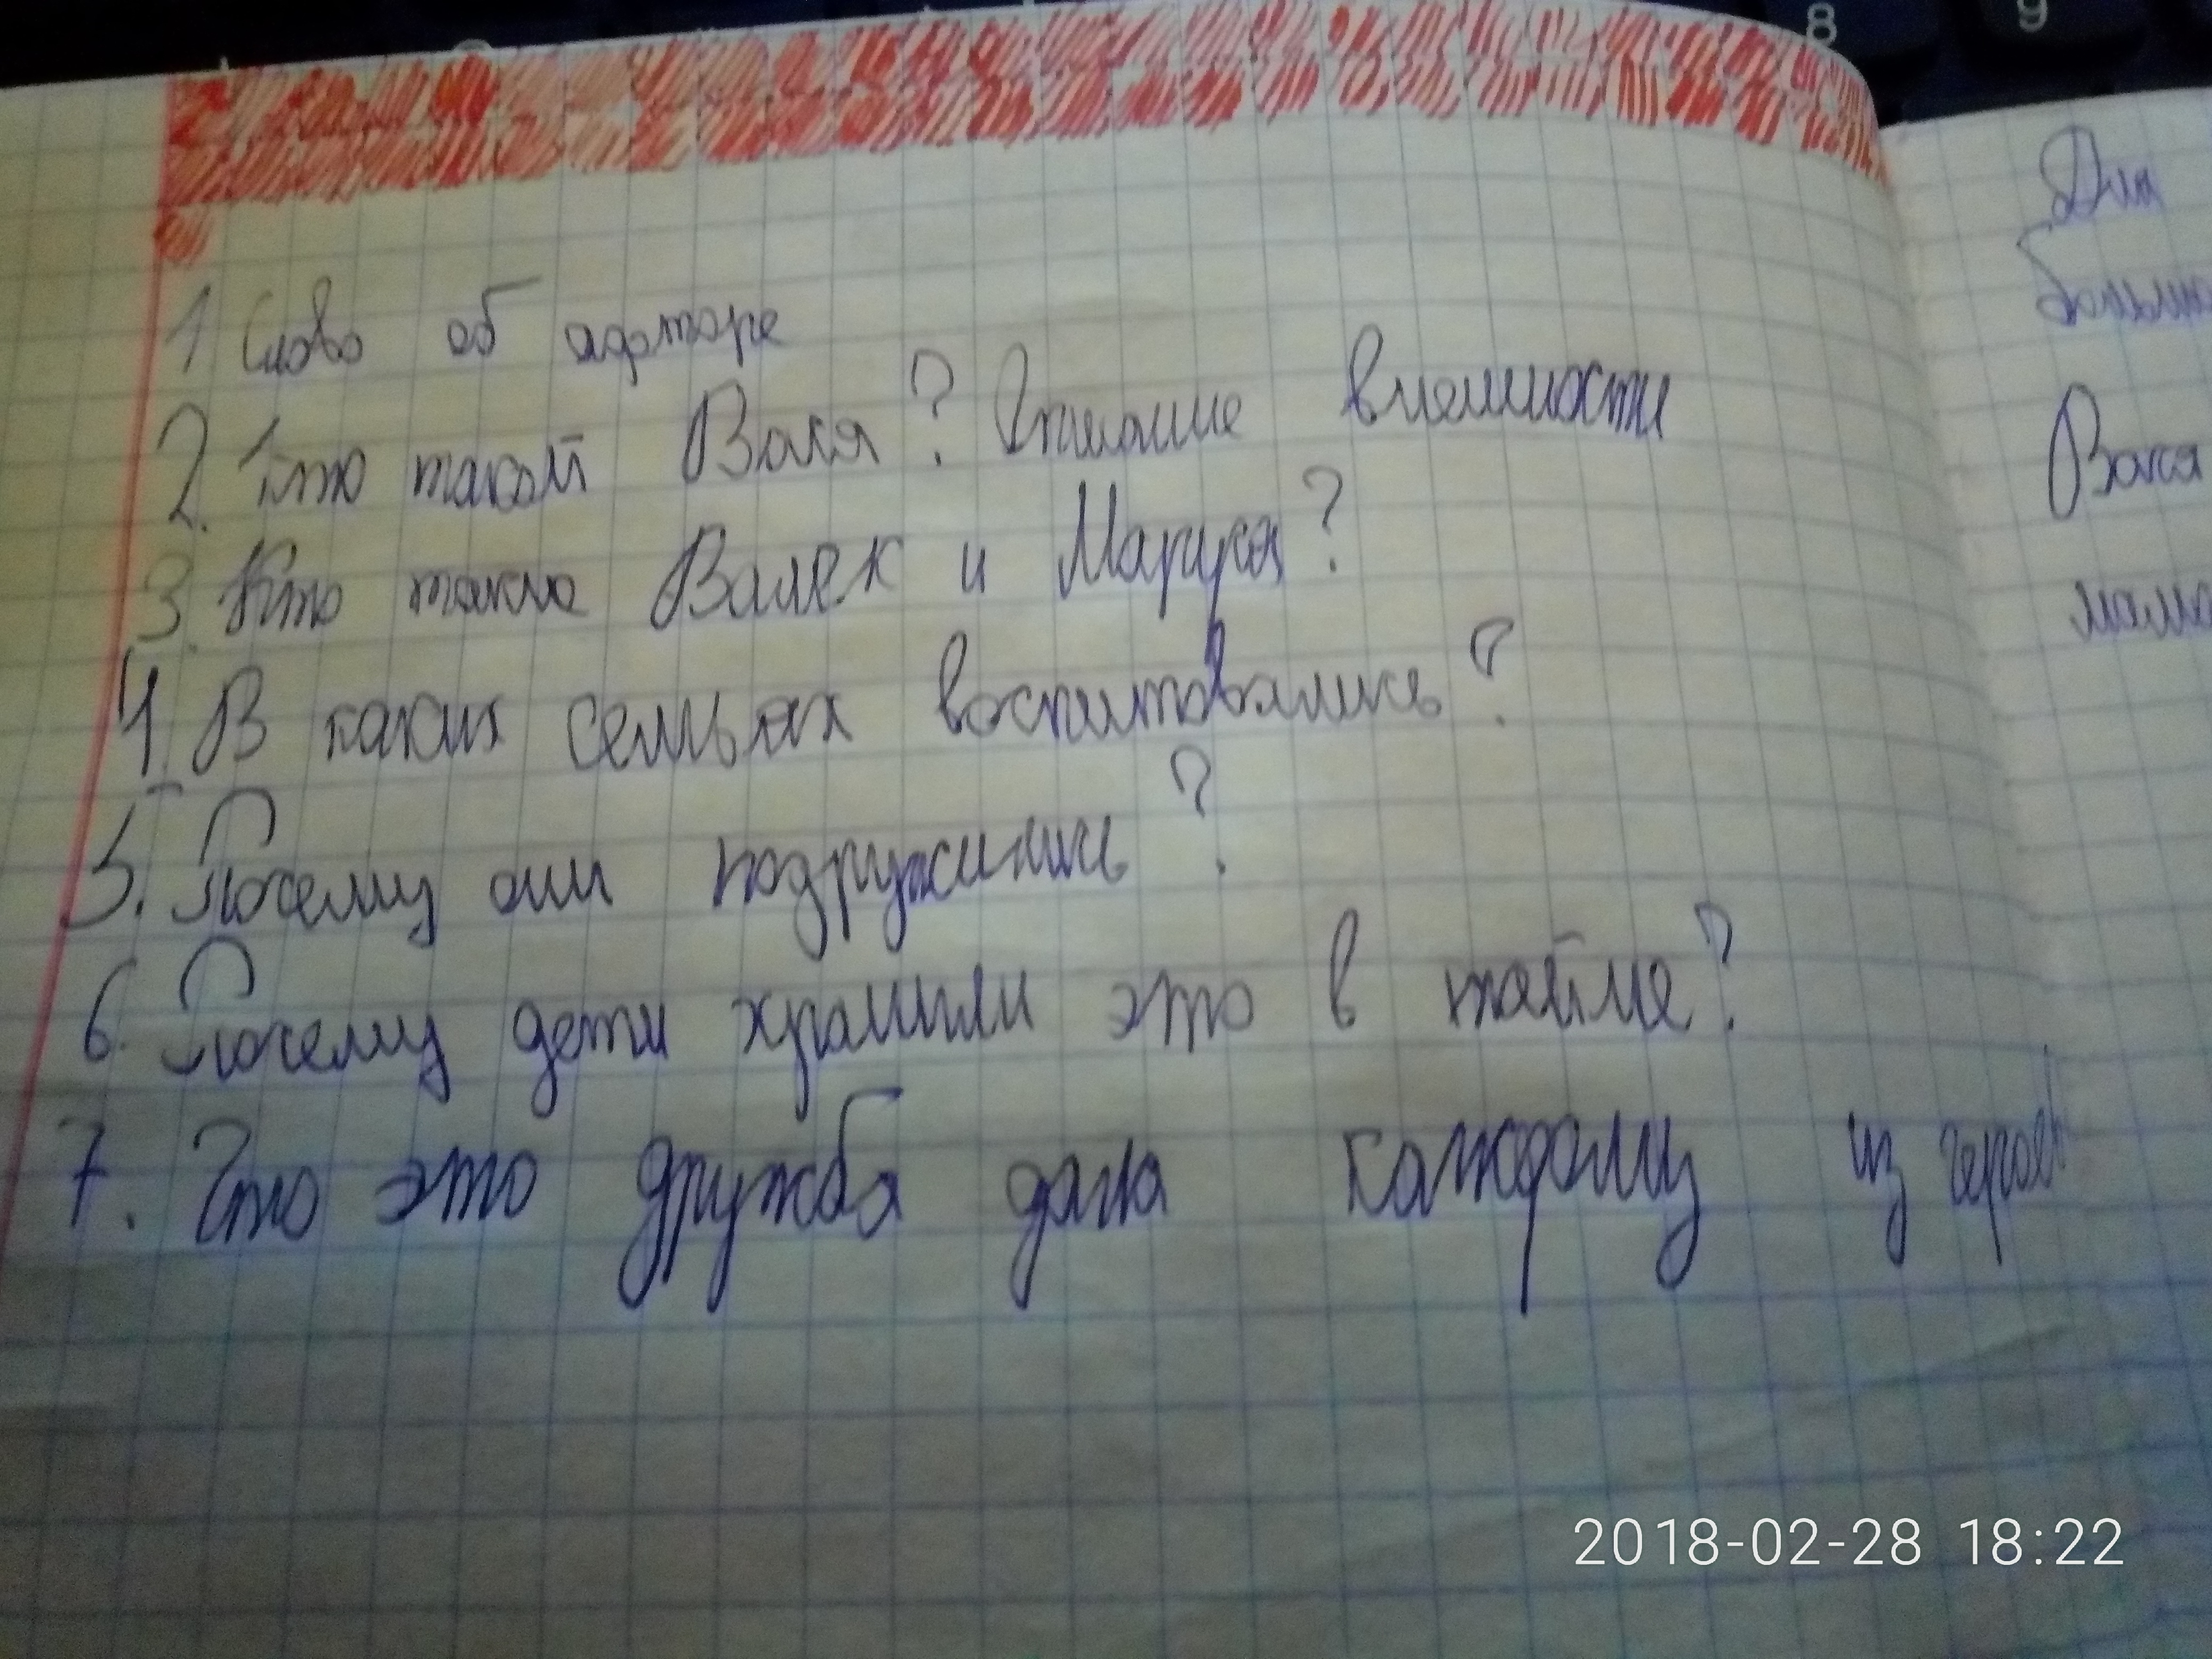 1 Слово об афторе
2. Кто такой Вася? Описание внешности
3. Кто такие Валек и Маруся?
4. В каких семьях воспитовались?
5. Почему они подружились?
6. Почему дети хранили это в тайне?
7. Что это дружба дала каждому из героев
Для
Вася
8
9
2018-02-28 18:22